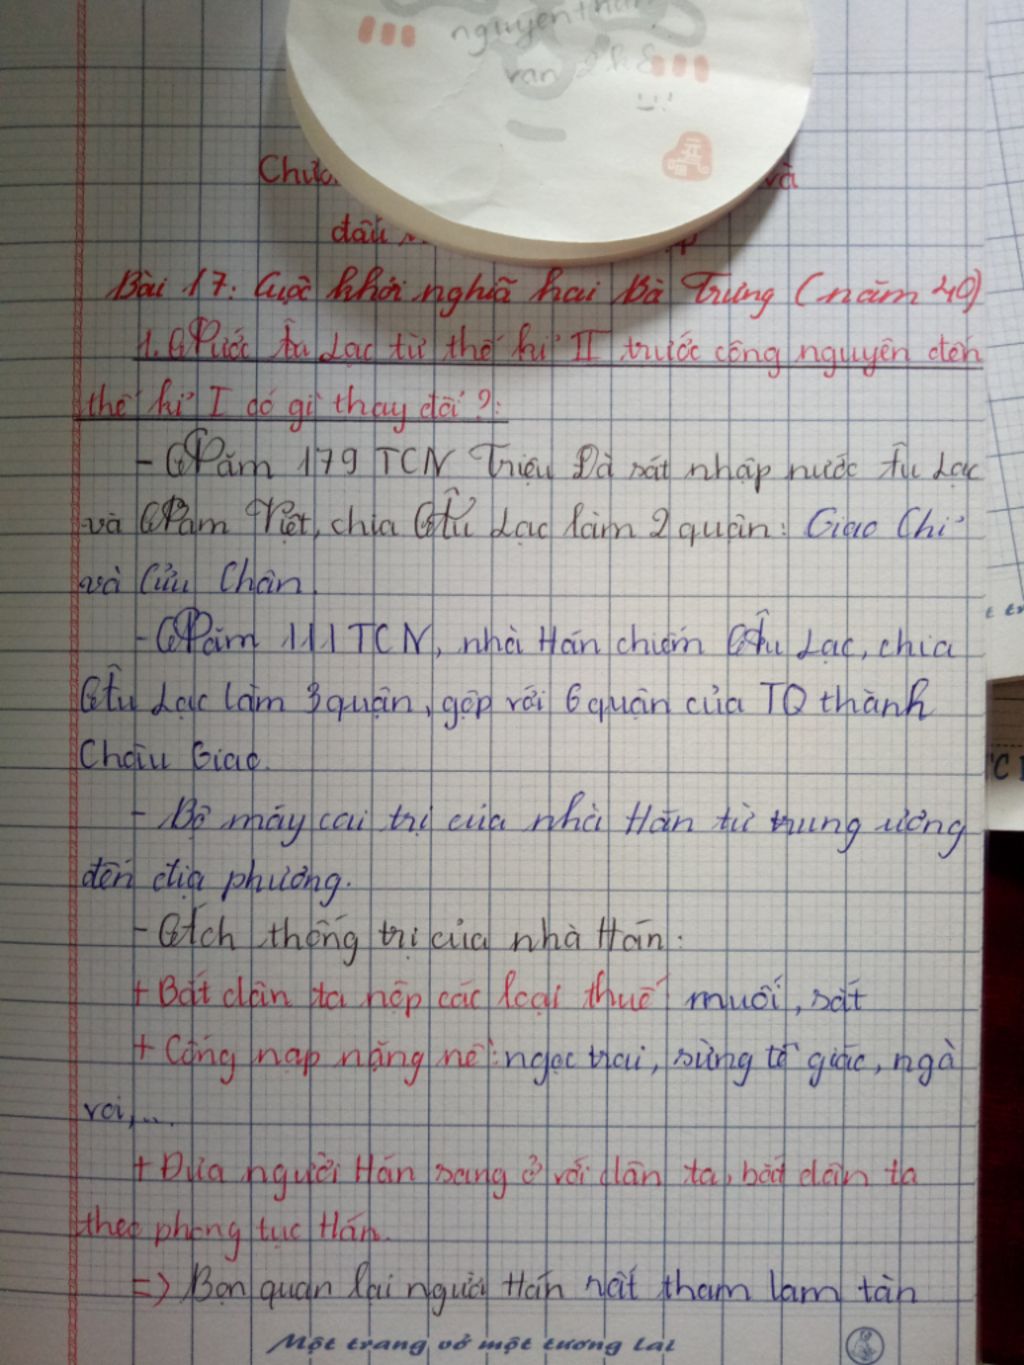 nguyễn
van 2k8
Chươ
và
đấu
Bài 17: Cuộc khởi nghĩa hai Bà Trưng (năm 40)
1. Nước Âu Lạc từ thế kỉ II trước công nguyên đến
thế kỉ I có gì thay đổi?:
- Năm 179 TCN Triệu Đà sát nhập nước Âu Lạc
và Nam Việt, chia Âu Lạc làm 2 quận: Giao Chỉ
và Cửu Chân.
- Năm 111 TCN, nhà Hán chiếm Âu Lạc, chia
Âu Lạc làm 3 quận, gộp với 6 quận của TQ thành
Châu Giao.
- Bộ máy cai trị của nhà Hán từ trung ương
đến địa phương.
- Ách thống trị của nhà Hán:
+ Bắt dân ta nộp các loại thuế muối, sắt
+ Cống nạp nặng nề: ngọc trai, sừng tê giác, ngà
voi,...
+ Đưa người Hán sang ở với dân ta, bắt dân ta
theo phong tục Hán.
=> Bọn quan lại người Hán rất tham lam tàn
Một trang vở một tương lai